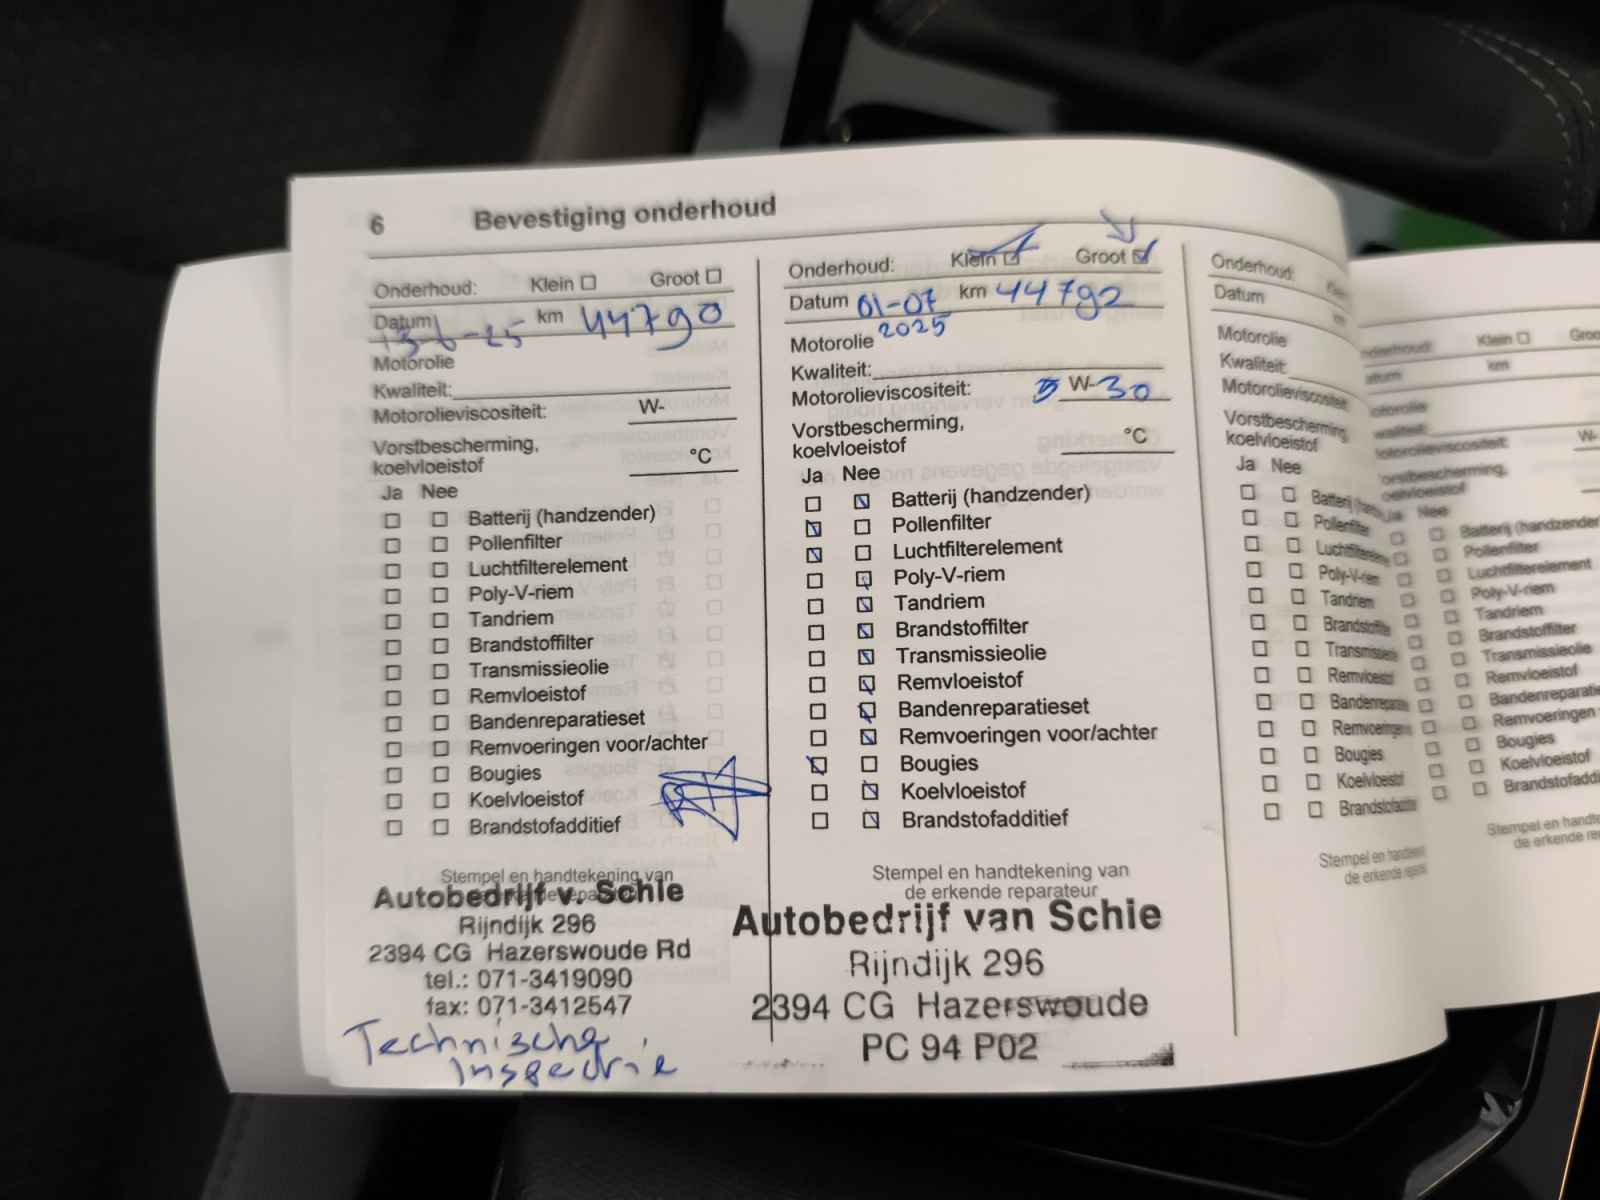 6 Bevestiging onderhoud
Onderhoud: Klein ☐ Groot ☐
Datum 13-6-25 km 44790
Motorolie
Kwaliteit:
Motorolieviscositeit: W-
Vorstbescherming,
koelvloeistof °C
Ja Nee
☐ ☐ Batterij (handzender)
☐ ☐ Pollenfilter
☐ ☐ Luchtfilterelement
☐ ☐ Poly-V-riem
☐ ☐ Tandriem
☐ ☐ Brandstoffilter
☐ ☐ Transmissieolie
☐ ☐ Remvloeistof
☐ ☐ Bandenreparatieset
☐ ☐ Remvoeringen voor/achter
☐ ☐ Bougies
☐ ☐ Koelvloeistof
☐ ☐ Brandstofadditief
Stempel en handtekening van
Autobedrijf v. Schie
Rijndijk 296
2394 CG Hazerswoude Rd
tel.: 071-3419090
fax: 071-3412547
Technische
Inspectrie
Onderhoud: Klein ☑ Groot ☑
Datum 01-07 km 44792
2025
Motorolie
Kwaliteit:
Motorolieviscositeit: 5 W-30
Vorstbescherming,
koelvloeistof °C
Ja Nee
☐ ☑ Batterij (handzender)
☑ ☐ Pollenfilter
☑ ☐ Luchtfilterelement
☐ ☑ Poly-V-riem
☐ ☑ Tandriem
☐ ☑ Brandstoffilter
☐ ☑ Transmissieolie
☐ ☑ Remvloeistof
☐ ☑ Bandenreparatieset
☐ ☑ Remvoeringen voor/achter
☑ ☐ Bougies
☐ ☑ Koelvloeistof
☐ ☑ Brandstofadditief
Stempel en handtekening van
de erkende reparateur
Autobedrijf van Schie
Rijndijk 296
2394 CG Hazerswoude
PC 94 P02
Onderhoud:
Datum
Motorolie
Kwaliteit:
Motorolieviscositeit:
Vorstbescherming,
koelvloeistof
Ja Nee
☐ ☐ Pollenfilter
☐ ☐ Poly-V-riem
☐ ☐ Tandriem
☐ ☐ Remvloeistof
☐ ☐ Bougies
☐ ☐ Koelvloeistof
Stempel en
de erkende
Klein ☐
km
W-
Nee
☐ ☐ Batterij (handzender)
☐ ☐ Pollenfilter
☐ ☐ Luchtfilterelement
☐ ☐ Poly-V-riem
☐ ☐ Tandriem
☐ ☐ Brandstoffilter
☐ ☐ Transmissieolie
☐ ☐ Remvloeistof
☐ ☐ Remvoeringen
☐ ☐ Bougies
☐ ☐ Koelvloeistof
Stempel en
de erkende